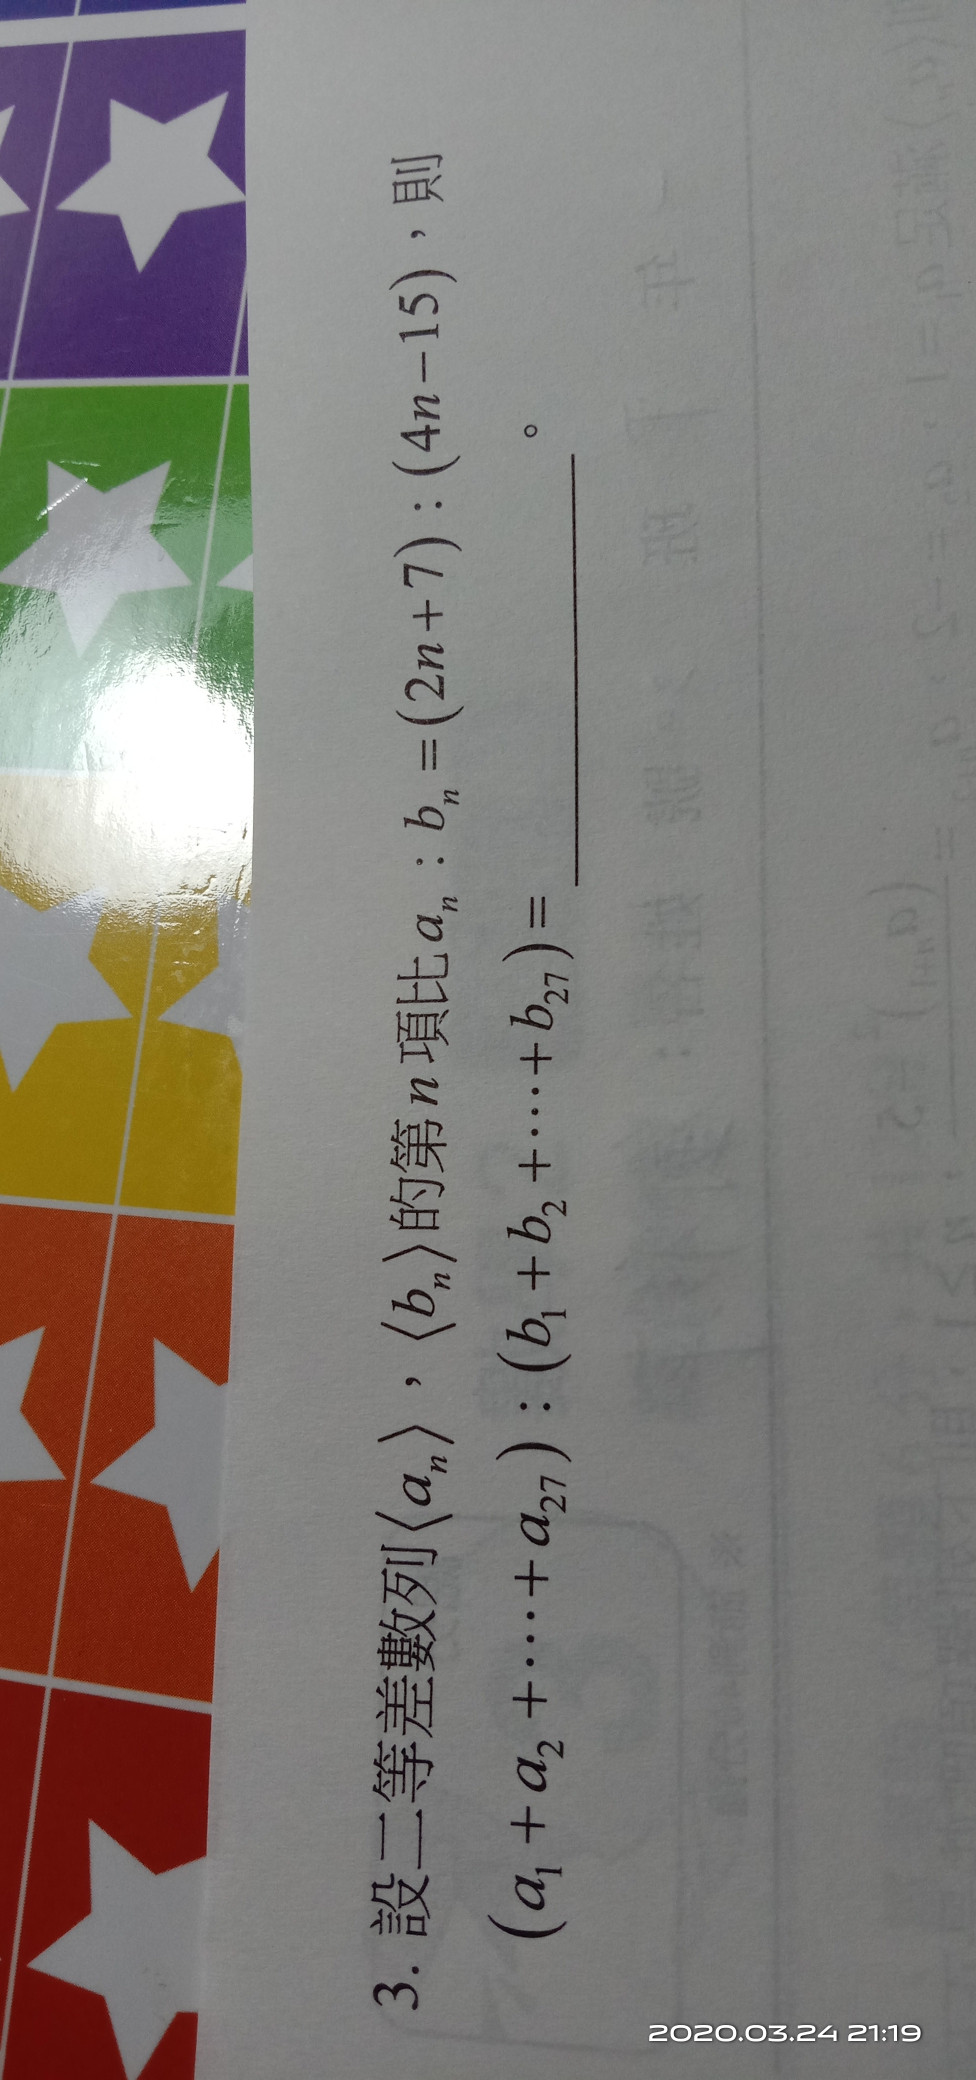 3. 設二等差數列⟨aₙ⟩，⟨bₙ⟩的第 n 項比 aₙ : bₙ = (2n+7) : (4n−15)，則
(a₁ + a₂ + ⋯⋯ + a₂₇) : (b₁ + b₂ + ⋯⋯ + b₂₇) = ________。
2020.03.24 21:19